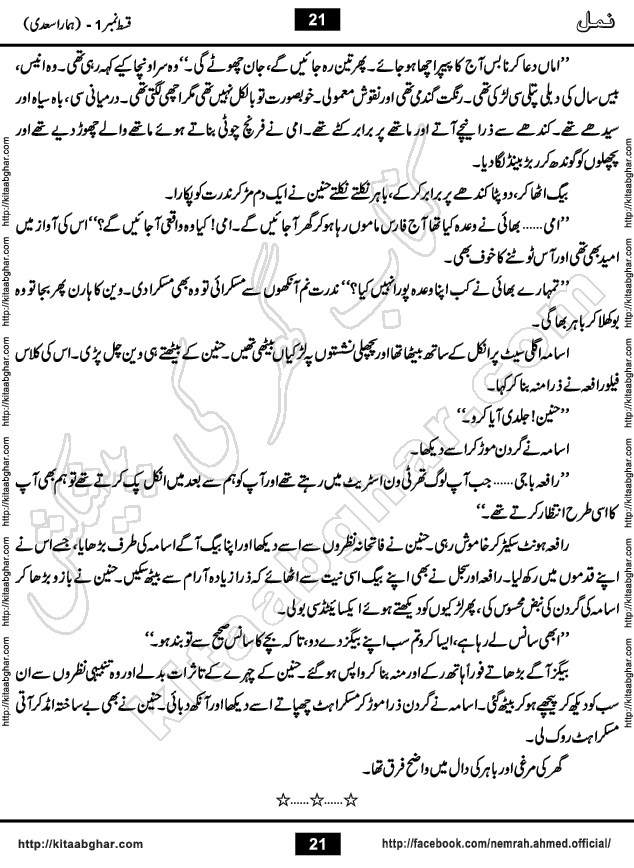 نمل
21
قسط نمبر 1 - (ہمارا سعدی)
’’اماں دعا کرنا بس آج کا پیپر اچھا ہو جائے۔ پھر تین رہ جائیں گے، جان چھوٹے گی۔‘‘ وہ سر اونچا کیے کہہ رہی تھی۔ وہ انیس،
بیس سال کی دبلی پتلی سی لڑکی تھی۔ رنگت گندمی تھی اور نقوش معمولی۔ خوبصورت تو بالکل نہیں تھی مگر اچھی لگتی تھی۔ درمیانی سی، باہ سیاہ اور
سیدھے تھے۔ کندھے سے ذرا نیچے آتے اور ماتھے پر برابر کٹے تھے۔ امی نے فرنچ چوٹی بناتے ہوئے ماتھے والے چھوڑ دیے تھے اور
پچھلوں کو گوندھ کر ربڑ بینڈ لگا دیا۔
بیگ اٹھا کر، دوپٹا کندھے پر برابر کر کے، باہر نکلتے نکلتے حنین نے ایک دم مڑ کر ندرت کو پکارا۔
’’امی...... بھائی نے وعدہ کیا تھا آج فارس ماموں رہا ہو کر گھر آ جائیں گے۔ امی! کیا وہ واقعی آ جائیں گے؟‘‘ اس کی آواز میں
امید بھی تھی اور آس ٹوٹنے کا خوف بھی۔
’’تمہارے بھائی نے کب اپنا وعدہ پورا نہیں کیا؟‘‘ ندرت نم آنکھوں سے مسکرائی تو وہ بھی مسکرا دی۔ وین کا ہارن پھر بجا تو وہ
بوکھلا کر باہر بھاگی۔
اسامہ اگلی سیٹ پر انکل کے ساتھ بیٹھا تھا اور پچھلی نشستوں پہ لڑکیاں بیٹھی تھیں۔ حنین کے بیٹھتے ہی وین چل پڑی۔ اس کی کلاس
فیلو رافعہ نے ذرا منہ بنا کر کہا۔
’’حنین! جلدی آیا کرو۔‘‘
اسامہ نے گردن موڑ کر اسے دیکھا۔
’’رافعہ باجی...... جب آپ لوگ تھرٹی ون اسٹریٹ میں رہتے تھے اور آپ کو ہم سے بعد میں انکل پک کرتے تھے تو ہم بھی آپ
کا اسی طرح انتظار کرتے تھے۔‘‘
رافعہ ہونٹ سکیڑ کر خاموش رہی۔ حنین نے فاتحانہ نظروں سے اسے دیکھا اور اپنا بیگ آگے اسامہ کی طرف بڑھایا، جسے اس نے
اپنے قدموں میں رکھ لیا۔ رافعہ اور سجل نے بھی اپنے بیگ اسی نیت سے اٹھائے کہ ذرا زیادہ آرام سے بیٹھ سکیں۔ حنین نے بازو بڑھا کر
اسامہ کی گردن کی نبض محسوس کی، پھر لڑکیوں کو دیکھتے ہوئے ایکسائیٹڈ سی بولی۔
’’ابھی سانس لے رہا ہے، ایسا کرو تم سب اپنے بیگز دے دو، تاکہ بچے کا سانس صحیح سے تو بند ہو۔‘‘
بیگز آگے بڑھاتے فوراً ہاتھ رکے اور منہ بنا کر واپس ہو گئے۔ حنین کے چہرے کے تاثرات بدلے اور وہ تنبیہی نظروں سے ان
سب کو دیکھ کر پیچھے ہو کر بیٹھ گئی۔ اسامہ نے گردن ذرا موڑ کر مسکراہٹ چھپاتے اسے دیکھا اور آنکھ دبائی۔ حنین نے بھی بے ساختہ امڈ کر آتی
مسکراہٹ روک لی۔
گھر کی مرغی اور باہر کی دال میں واضح فرق تھا۔
☆......☆......☆
http://kitaabghar.com
http://kitaabghar.com
http://kitaabghar.com
http://kitaabghar.com
http://kitaabghar.com
http://kitaabghar.com
http://kitaabghar.com
http://kitaabghar.com
http://kitaabghar.com
http://kitaabghar.com
http://kitaabghar.com
http://kitaabghar.com
کتاب گھر کی پیشکش
kitaabghar.com
http://kitaabghar.com
21
http://facebook.com/nemrah.ahmed.official/